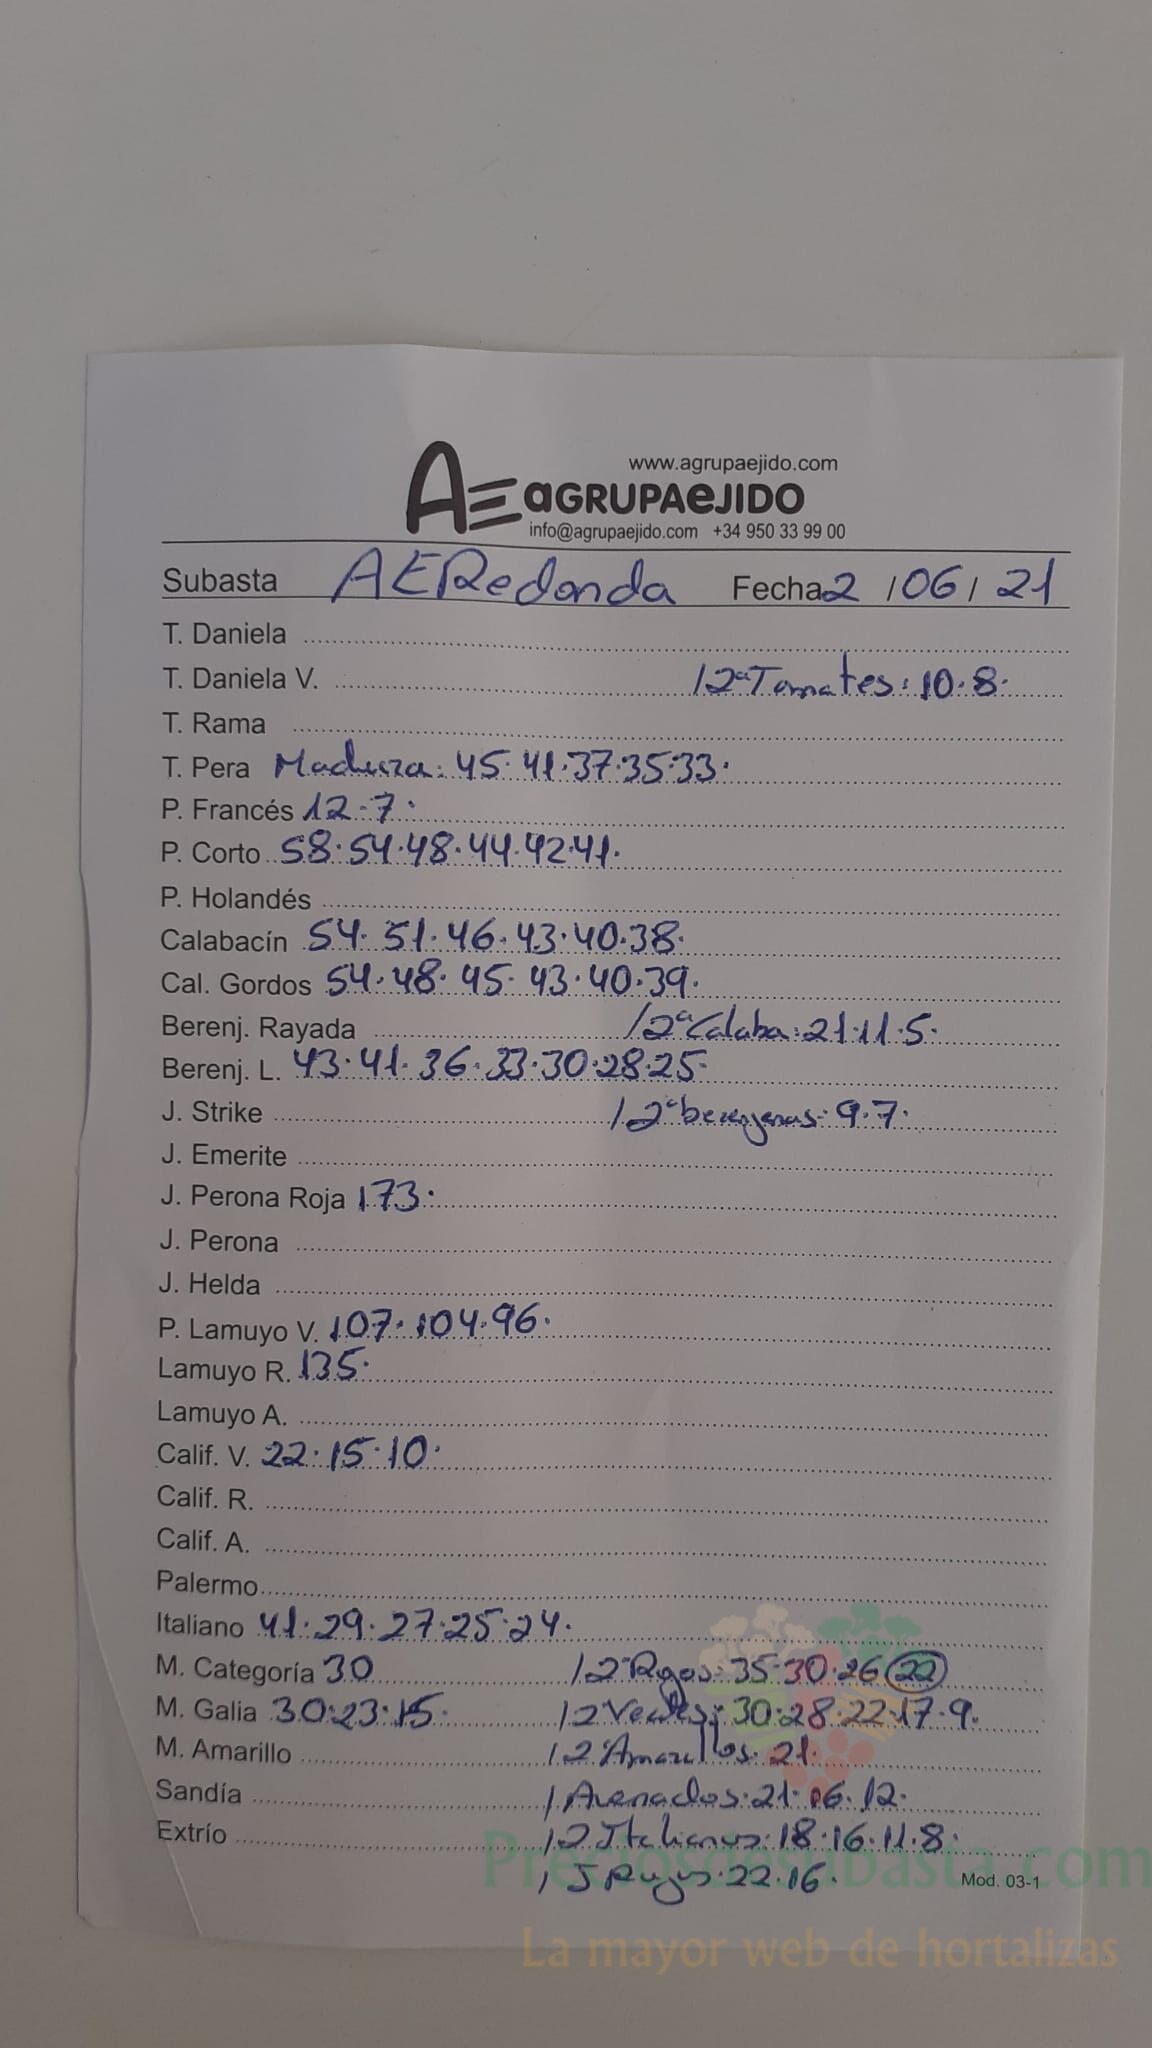 www.agrupaejido.com
AE aGRUPAeJIDO
info@agrupaejido.com +34 950 33 99 00
Subasta AERedonda Fecha 2 / 06 / 21
T. Daniela
T. Daniela V. / 2ª Tomates: 10. 8.
T. Rama
T. Pera Madura: 45. 41. 37. 35. 33.
P. Francés 12. 7.
P. Corto 58. 54. 48. 44. 42. 41.
P. Holandés
Calabacín 54. 51. 46. 43. 40. 38.
Cal. Gordos 54. 48. 45. 43. 40. 39.
Berenj. Rayada / 2ª Calaba: 21. 11. 5.
Berenj. L. 43. 41. 36. 33. 30. 28. 25.
J. Strike / 2ª berenjenas: 9. 7.
J. Emerite
J. Perona Roja 173.
J. Perona
J. Helda
P. Lamuyo V. 107. 104. 96.
Lamuyo R. 135.
Lamuyo A.
Calif. V. 22. 15. 10.
Calif. R.
Calif. A.
Palermo
Italiano 41. 29. 27. 25. 24.
M. Categoría 30 / 2ª Rojos: 35. 30. 26 22
M. Galia 30. 23. 15. / 2 Verdes: 30. 28. 22. 17. 9.
M. Amarillo / 2 Amarillos: 21.
Sandía / Asenados: 21. 16. 12.
Extrío / 2 Italianos: 18. 16. 11. 8.
/ J Rojos: 22. 16.
Mod. 03-1
Preciosdesubasta.com
La mayor web de hortalizas